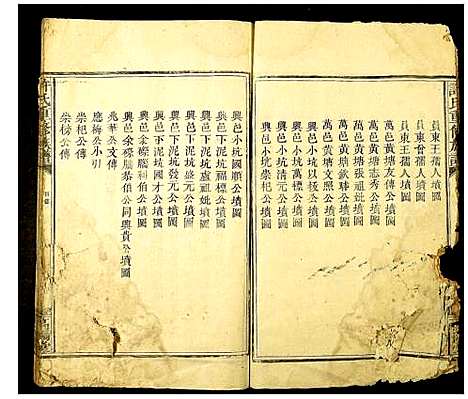 員東王孺人墳圖
員東曾孺人墳圖
員東王孺人墳圖
萬邑黃塘友傳公墳圖
萬邑黃塘志秀公墳圖
萬邑黃塘張祖妣墳圖
萬邑黃塘欽聯公墳圖
萬邑黃塘文照公墳圖
興邑小坑以極公墳圖
興邑小坑萬標公墳圖
興邑小坑崇清公墳圖
興邑小坑崇杞公墳圖
興邑小坑國順公墳圖
興邑下泥坑福標公墳圖
興邑下泥坑盧祖妣墳圖
興邑下泥坑盛元公墳圖
興邑下泥坑發元公墳圖
興邑下泥坑國才公墳圖
興邑金螺腦科伯公墳圖
興邑金螺腦恭伯公同興貴公墳圖
兆華公支傳
應梅公小引
崇杞公傳
崇榜公傳
許氏重修族譜